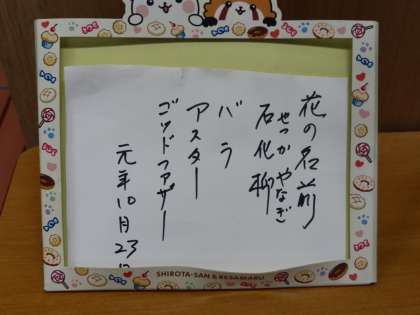 花の名前
せっかやなぎ
石化柳
バラ
アスター
ゴッドファザー
元年10月23
SHIROTA-SAN & RESAMARU